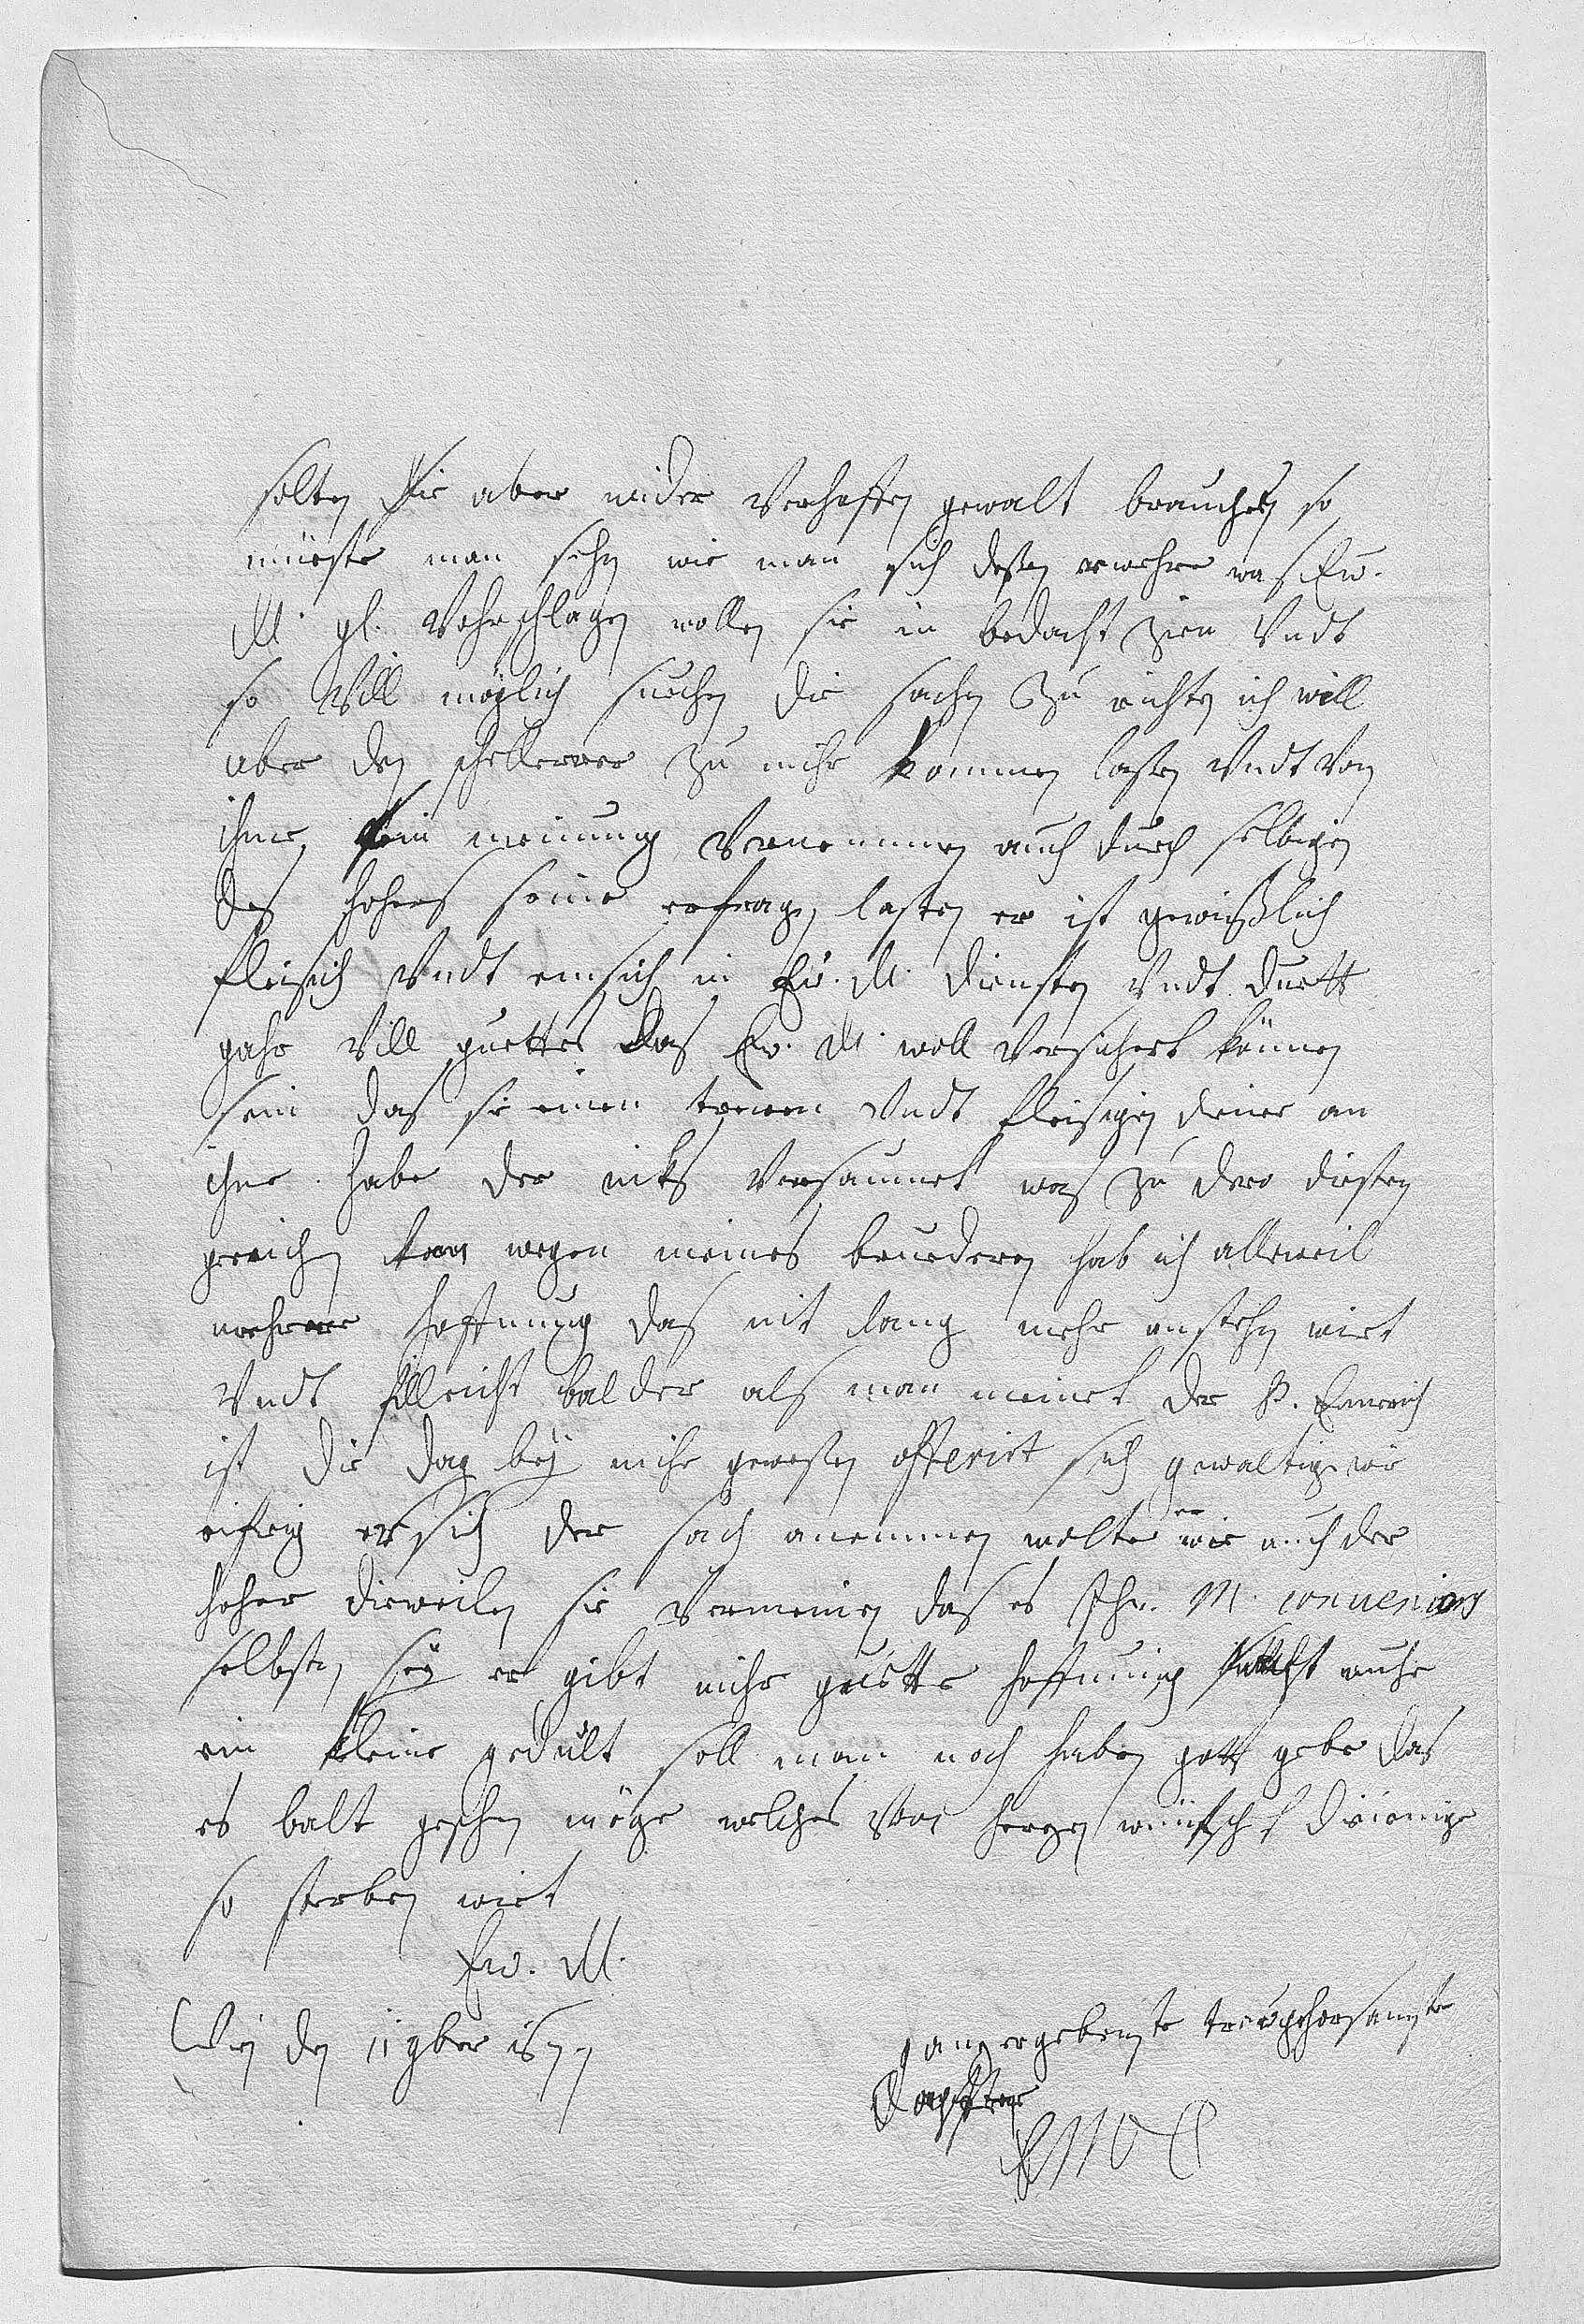 solten sie aber wider verhoffen gewalt brauchen so
müeste man sehen wie man sich deßen erwehre was Ew.
M. gl. vohrschlagen wollen sie in bedacht zien vndt
so vill möglich suechen die sachen zu richten ich will
aber den schellerer zu mihr kommen laßen vndt von
ihme sein meinung vernemmen auch durch selbigen
des hohers seine erfragen laßen er ist gewißlich
fleisich vndt emsich in Ew. M. diensten vndt duett
gahr vill guettes das Ew. M. woll versichert können
sein das sie einen trewen vndt fleisigen diener an
ihme habe der nichts versaumet was zu dero diensten
gereichen kan wegen meines bruederen hab ich alleweil
mehrere hoffnung das nit lang mehr anstehen wirt
vndt filleicht balder als man meinet der P. Emerich
ist die dag bey mihr geweßen offerirt sich gewaltig wie
eifrig er sich der sach annemmen wolte wie auch der
hoher dieweilen sie vermeinen das es Ihr. M. conueniens
selbsten sey er gibt mihr guette hoffnung nuhr
ein kleine gedult soll man noch haben gott gebe das
es balt geschehen möge welches von herzen wünscht diejenige
so sterben wirt
Ew. M.
Wien den 11 9ber 1677
ganz ergebenste trewgehorsamste
dochter
EMT